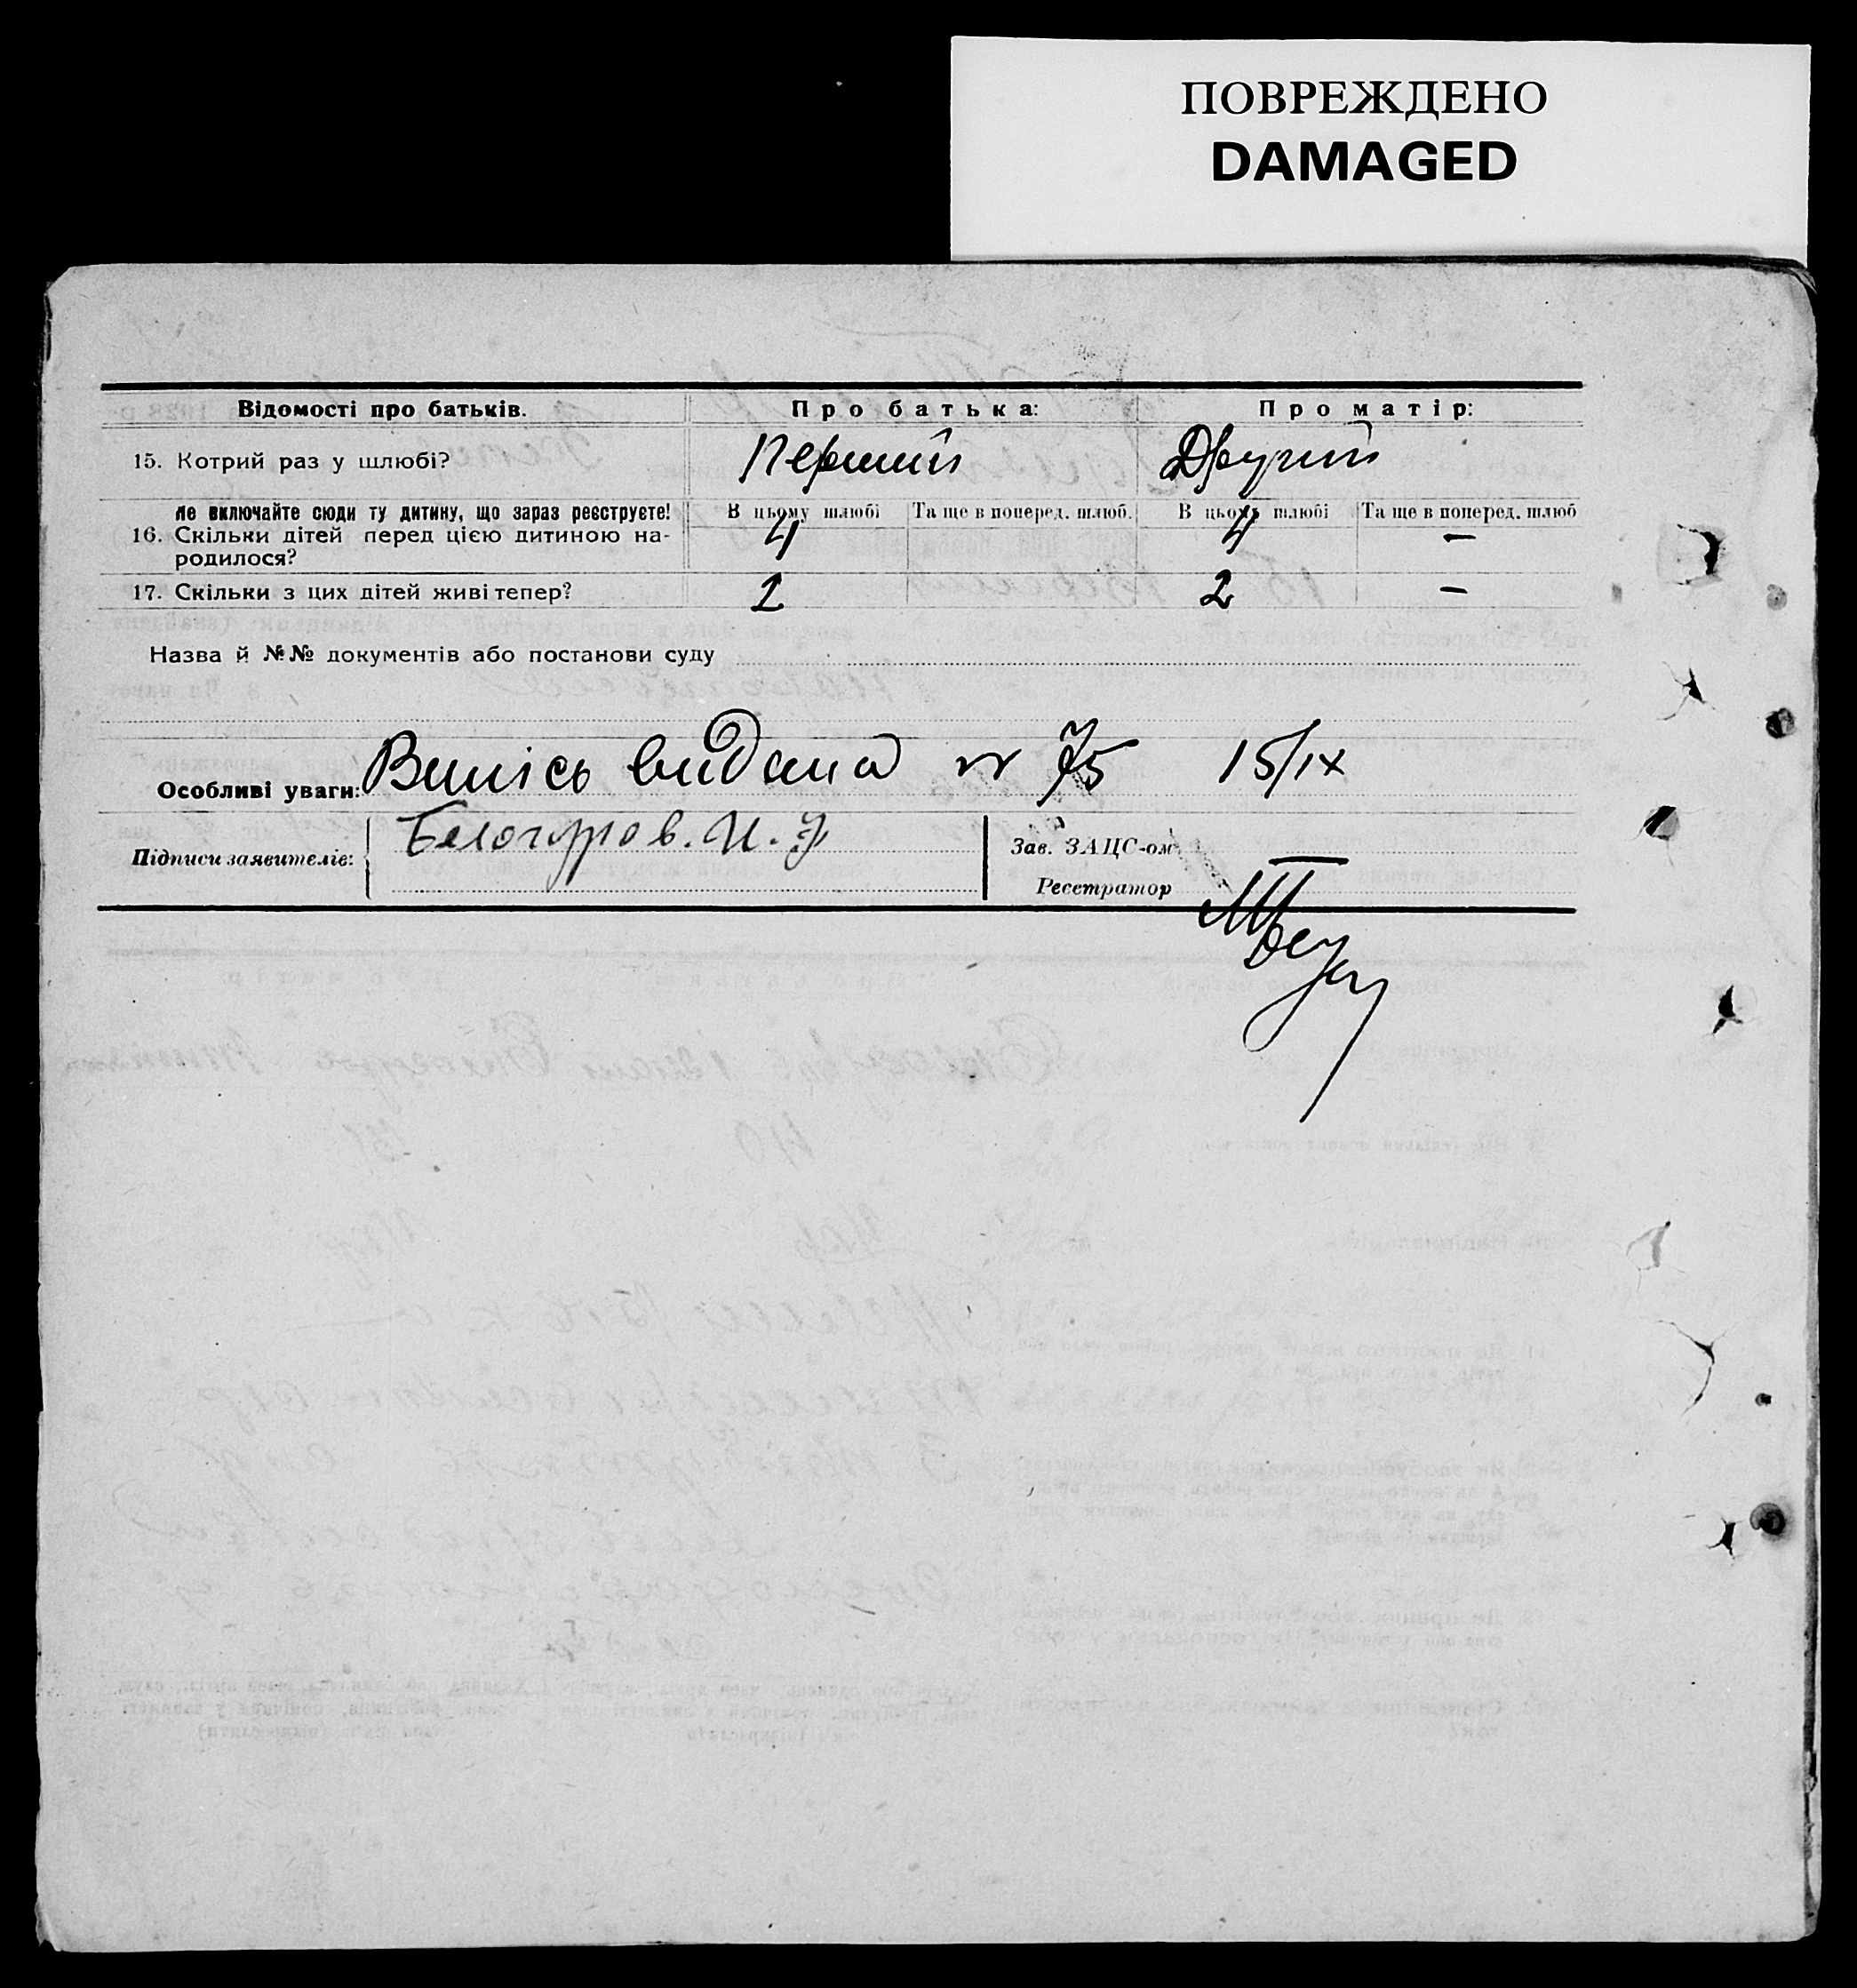 ПОВРЕЖДЕНО
DAMAGED
Відомості про батьків. Про батька: Про матір:
15. Котрий раз у шлюбі? Перший Другий
Не включайте сюди ту дитину, що зараз реєструєте! В цьому шлюбі Та ще в поперед. шлюб. В цьому шлюбі Та ще в поперед. шлюб
16. Скільки дітей перед цією дитиною на- 4 4 –
родилося?
17. Скільки з цих дітей живі тепер? 2 2 –
Назва й №№ документів або постанови суду
Особливі уваги: Випісь видана № 75 15/IX
Підписи заявителів: Белогуров. И. Ф
Зав. ЗАЦС-ом
Реєстратор